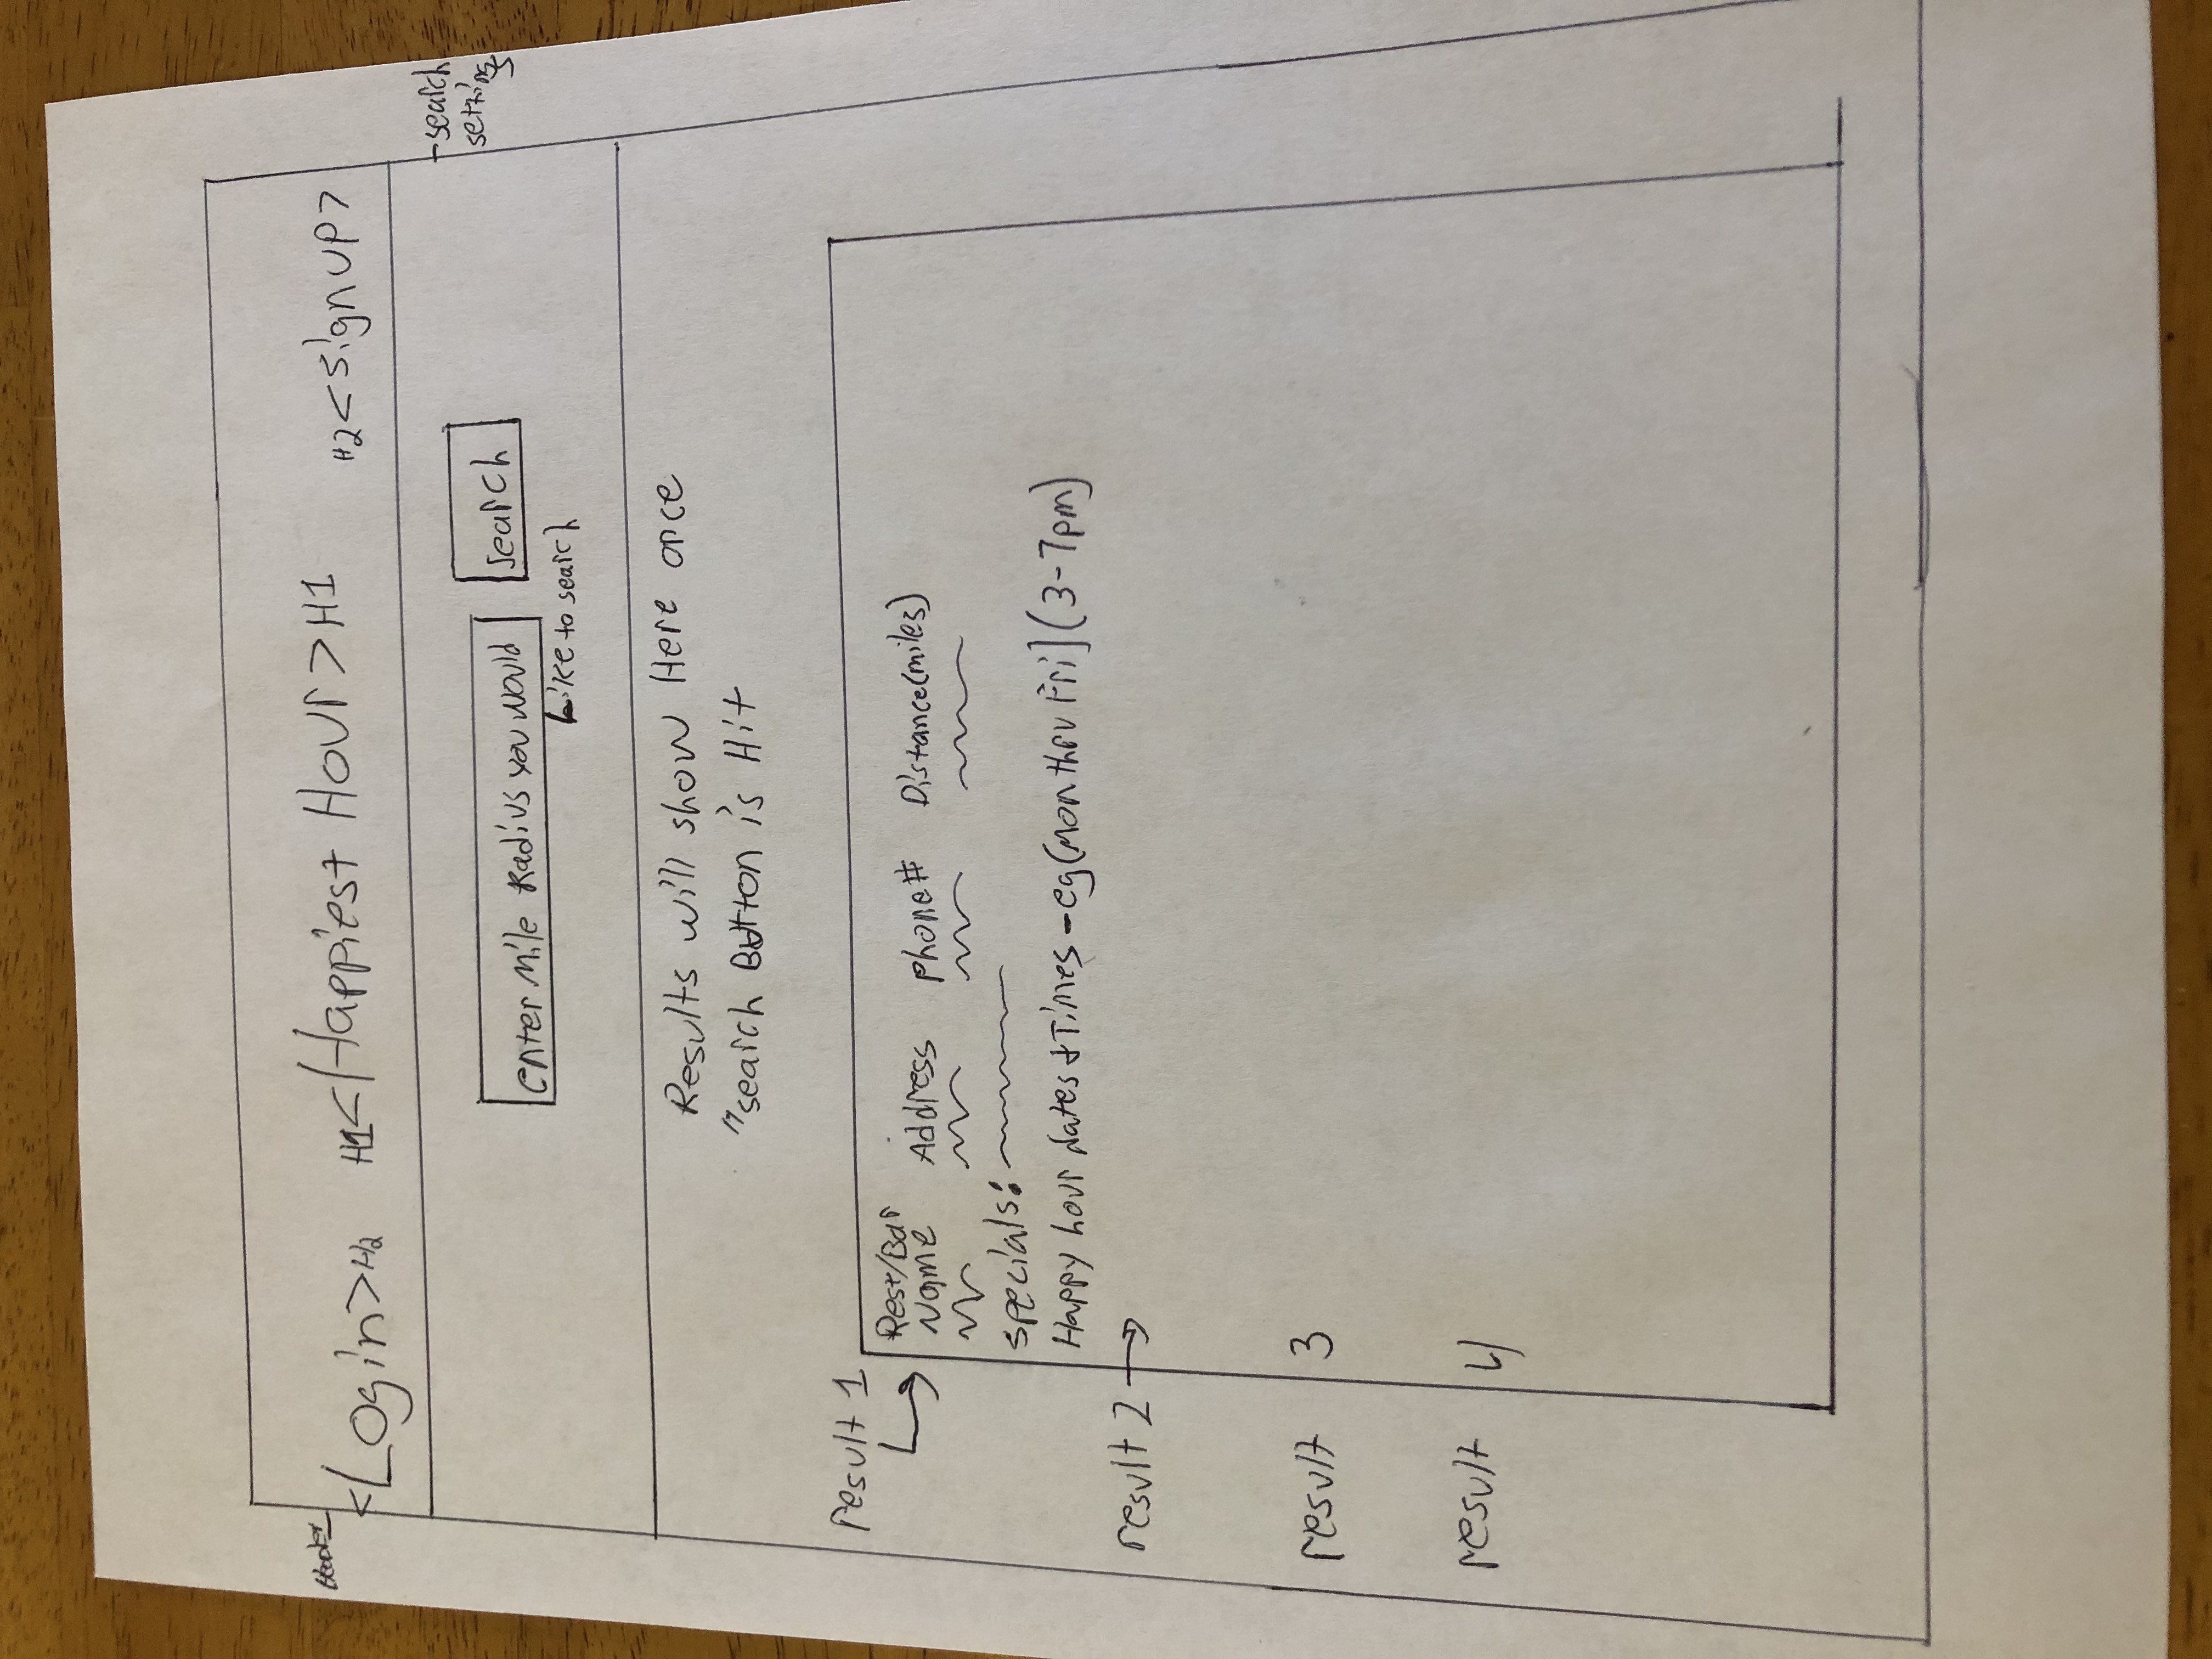 Header
<Login>H2 H1<Happiest Hour>H1 H2<signup>
search
settings
enter Mile Radius you would
search
Like to search
Results will show Here once
"search Button is Hit
result 1
Rest/Bar
Name Address phone# Distance(miles)
specials:
Happy hour dates & Times - eg(mon thru Fri] (3-7pm)
result 2
result 3
result 4